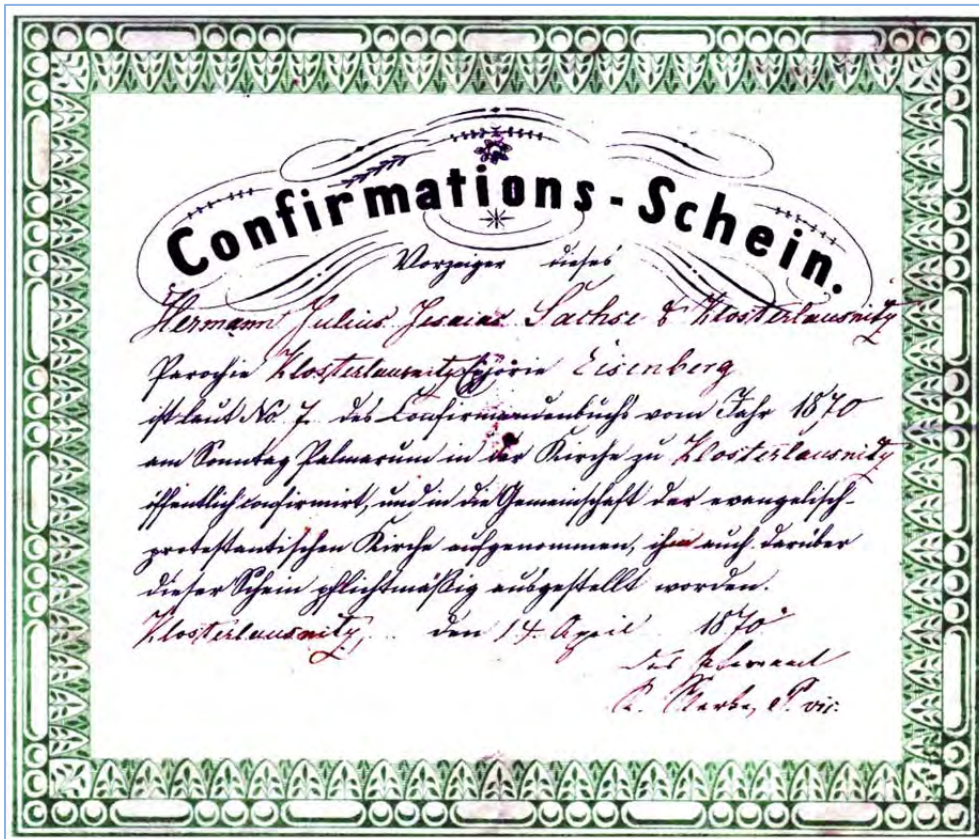 Confirmations-Schein.
Vorzeiger dieses
Hermann Julius Jesaias Sachse Klosterlausnitz
Parochie Klosterlausnitz Ephorie Eisenberg
ist laut No 7. des Confirmandenbuchs vom Jahr 1870
am Sonntag Palmarum in der Kirche zu Klosterlausnitz
öffentlich confirmirt, und in die Gemeinschaft der evangelisch-
protestantischen Kirche aufgenommen, ihm auch darüber
dieser Schein pflichtmäßig ausgestellt worden.
Klosterlausnitz, den 14. April 1870
Das Pfarramt